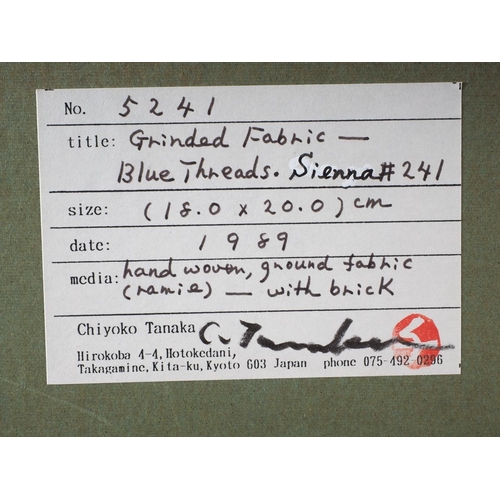 No. 5241
title: Grinded Fabric —
Blue Threads. Sienna #241
size: (18.0 x 20.0) cm
date: 1989
media: hand woven, ground fabric
(ramie) — with brick
Chiyoko Tanaka C. Tanaka
Hirokoba 4-4, Hotokedani,
Takagamine, Kita-ku, Kyoto 603 Japan phone 075-492-0296